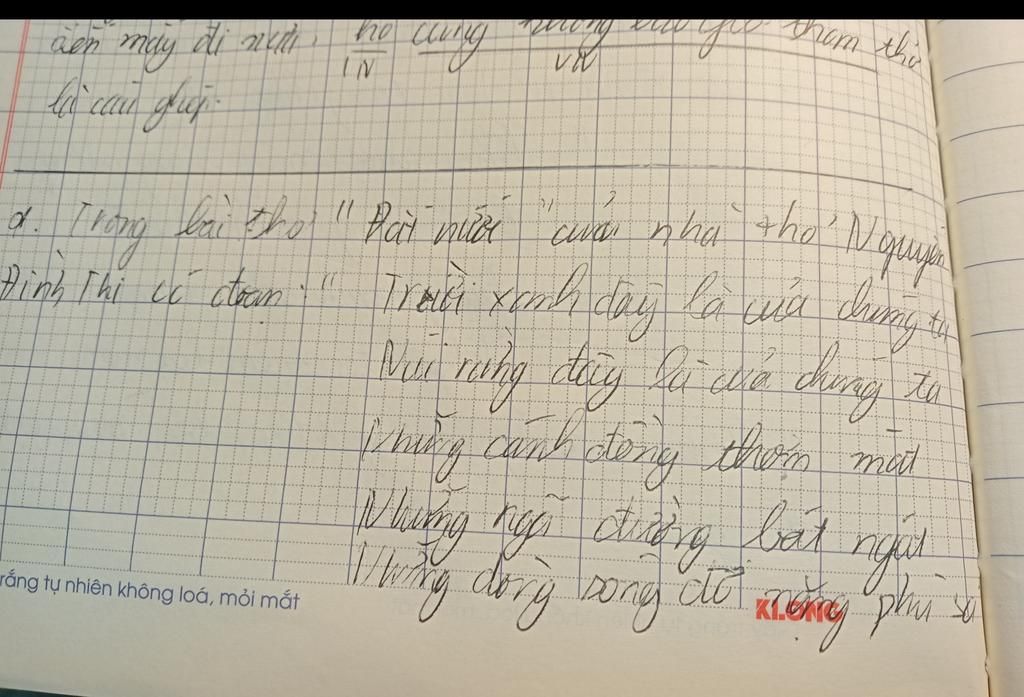 đến mấy đi nữa, họ cũng thăm thú
CN VN
là câu ghép.
d. Trong bài thơ "Đất nước" của nhà thơ Nguyễn
Đình Thi có đoạn: "Trời xanh đây là của chúng ta
Núi rừng đây là của chúng ta
Những cánh đồng thơm mát
Những ngả đường bát ngát
Những dòng sông đỏ nặng phù sa
rắng tự nhiên không loá, mỏi mắt
KLONG